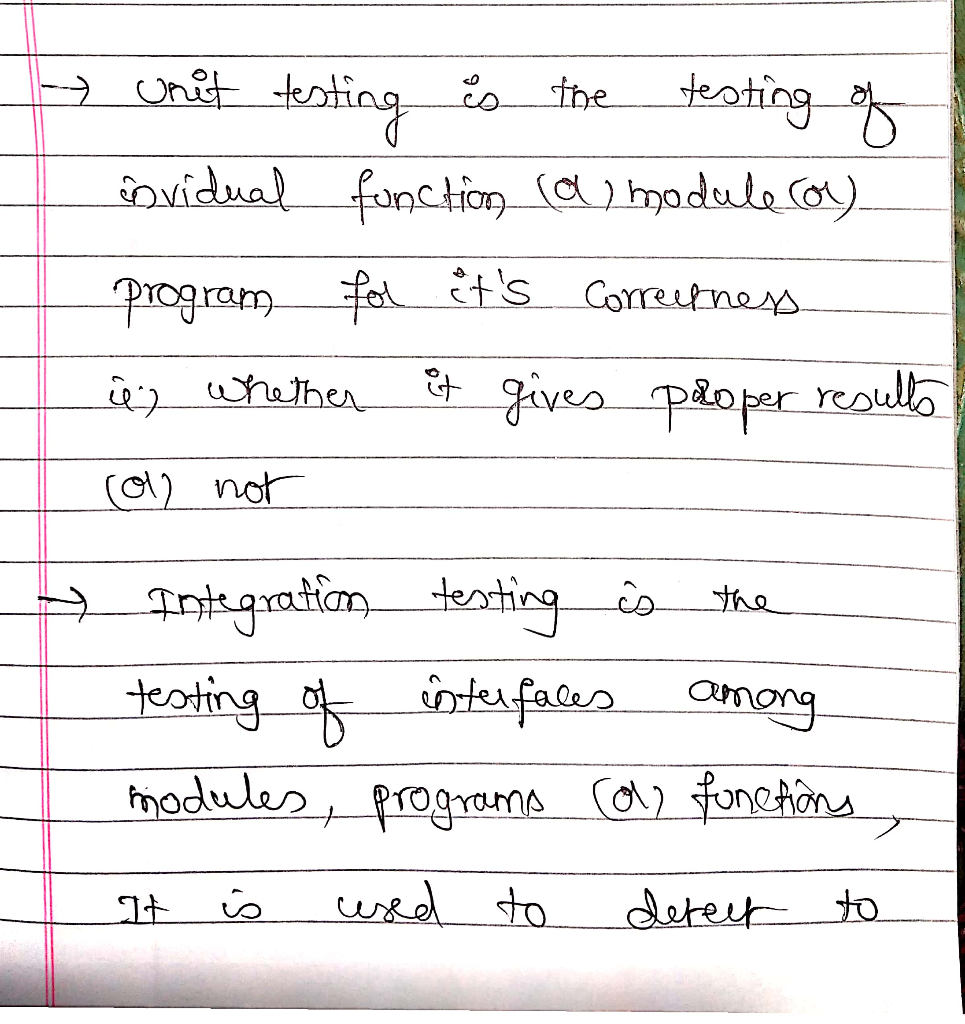 → unit testing is the testing of
invidual function (or) module (or)
program for it's correctness
ie; whether it gives proper results
(or) not
→ Integration testing is the
testing of interfaces among
modules, programs (or) functions,
It is used to detect to